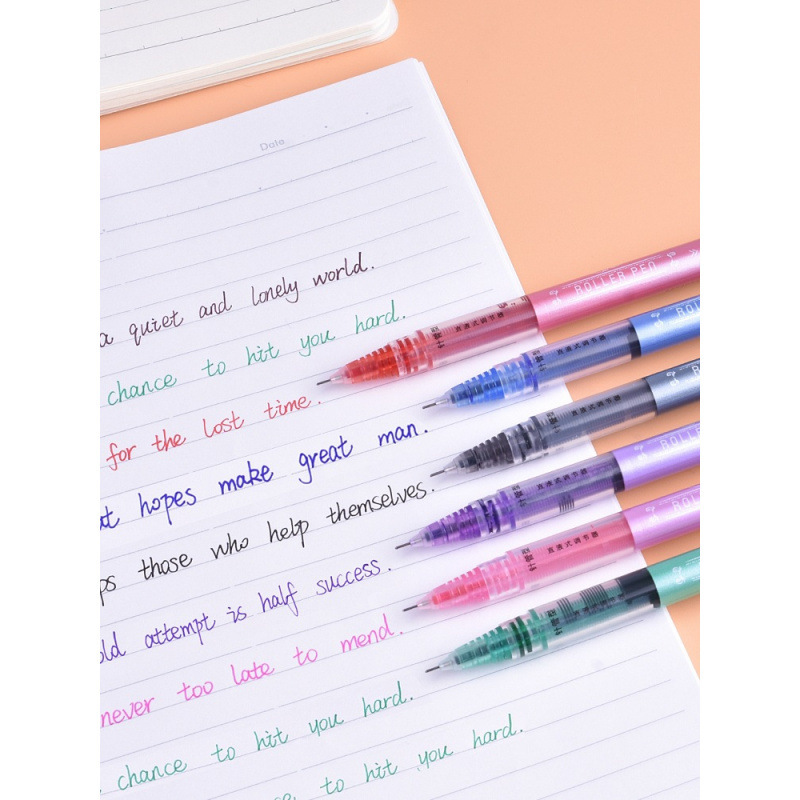 Date
a quiet and lonely world.
chance to hit you hard.
for the lost time.
at hopes make great man.
ps those who help themselves.
old attempt is half success.
never too late to mend.
chance to hit you hard.
ce to hit you hard.
ROLLER PEN
直液式调节器
直液式调节器
直液式调节器
直液式调节器
直液式调节器
直液式调节器
ROLLER
ROLLER
ROLL